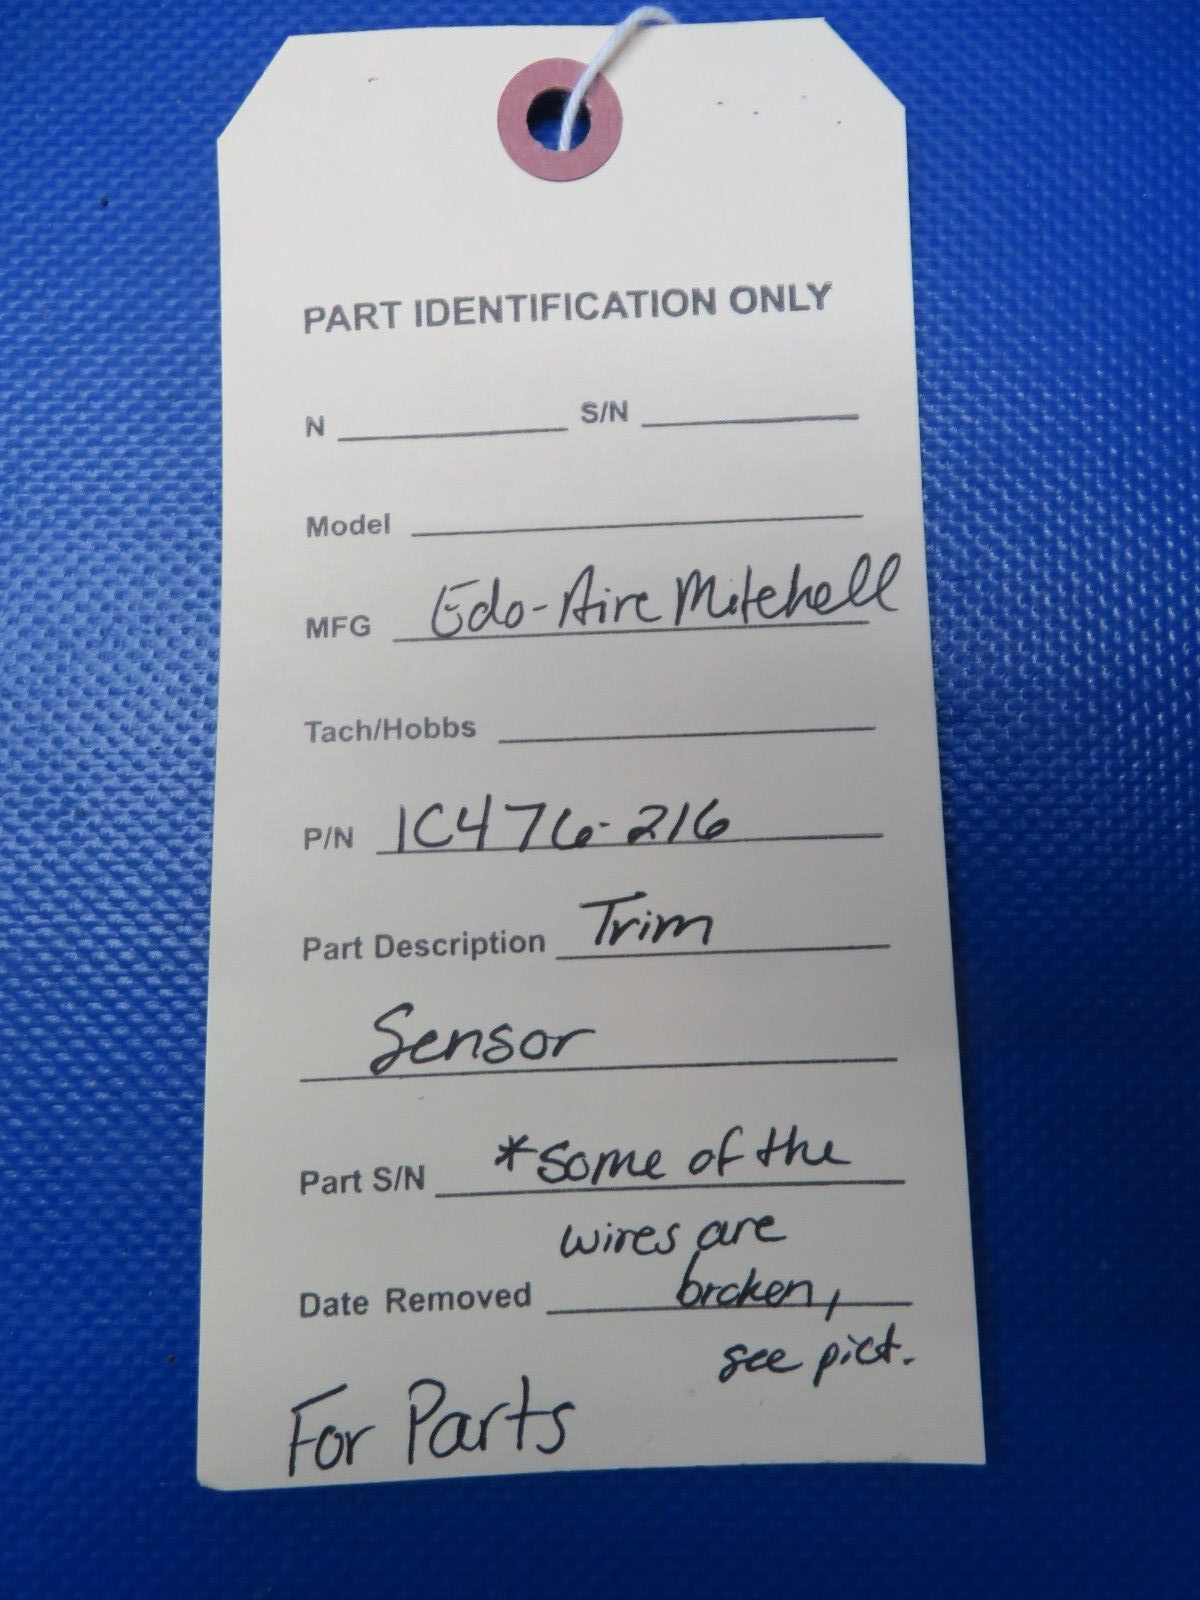 PART IDENTIFICATION ONLY
N S/N
Model
MFG Edo-Aire Mitchell
Tach/Hobbs
P/N 1C476-216
Part Description Trim
Sensor
Part S/N *some of the
wires are
Date Removed broken,
see pict.
For Parts